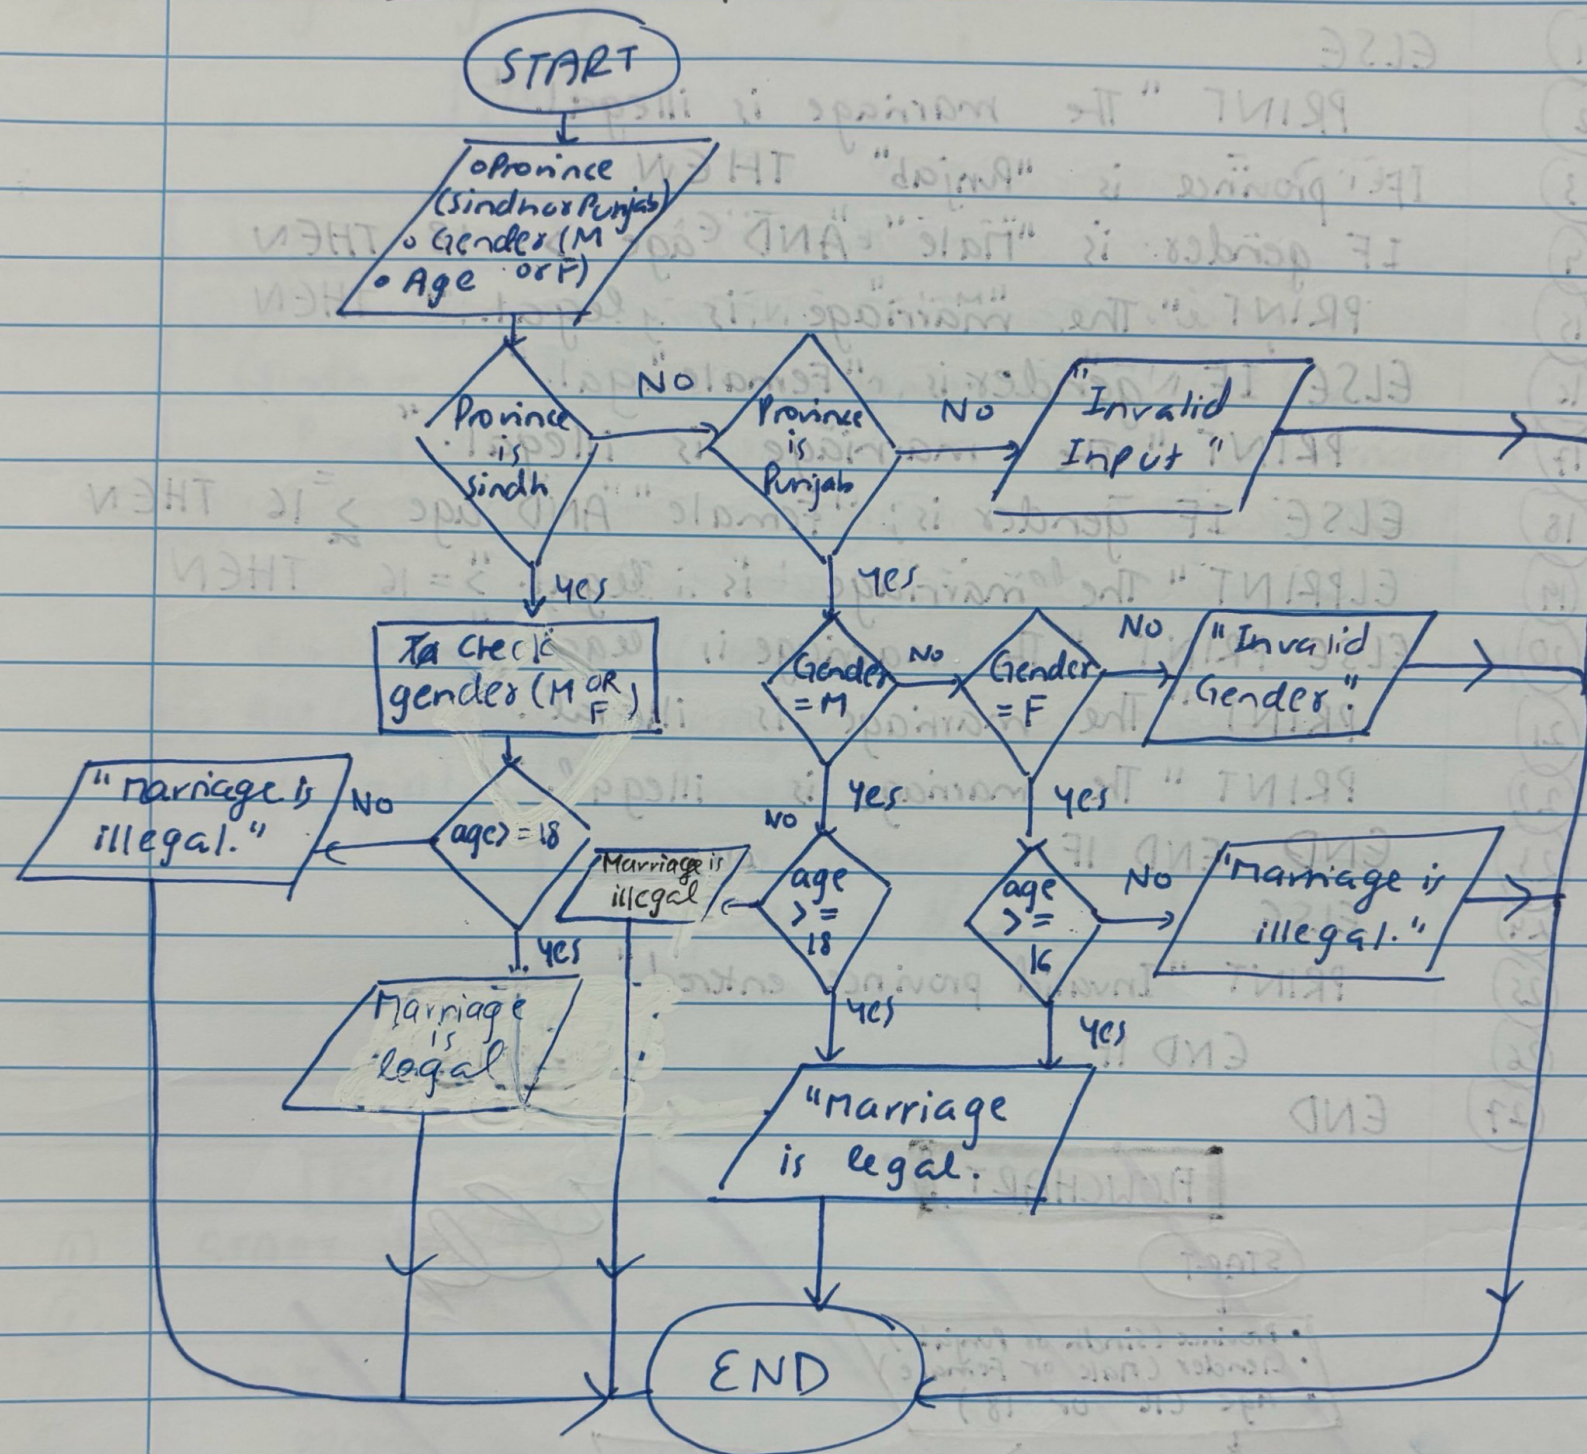 START
○Province
(Sindh or Punjab)
○ Gender (M
• Age or F)
Province
is
Sindh
NO
Province
is
Punjab
NO
"Invalid
Input"
yes
yes
To Check
gender (M OR F)
Gender
= M
No
Gender
= F
NO
"Invalid
Gender."
yes
yes
age>=18
NO
"Marriage is
illegal."
yes
Marriage
is
legal
age
>=
18
NO
Marriage is
illegal
yes
age
>=
16
NO
"Marriage is
illegal."
yes
"Marriage
is legal.
END